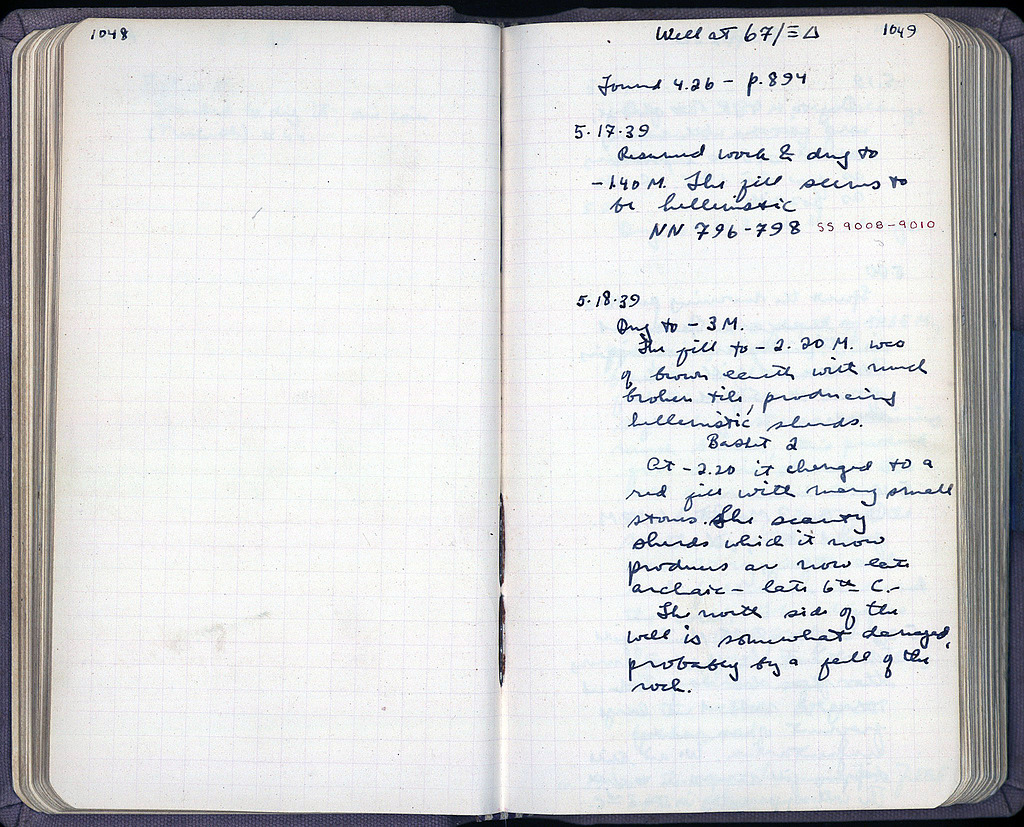 1048
Well at 67/ΞΔ 1049
Found 4.26 - p. 894
5.17.39
Resumed work & dug to
-1.40 M. The fill seems to
be hellenistic
NN 796-798 SS 9008-9010
5.18.39
Dug to - 3 M.
The fill to - 2.20 M. was
of brown earth with much
broken tile, producing
hellenistic sherds.
Basket 2
At -2.20 it changed to a
red fill with many small
stones. The scanty
sherds which it now
produces are now late
archaic - late 6th C.-
The north side of the
well is somewhat damaged,
probably by a fall of the
rock.